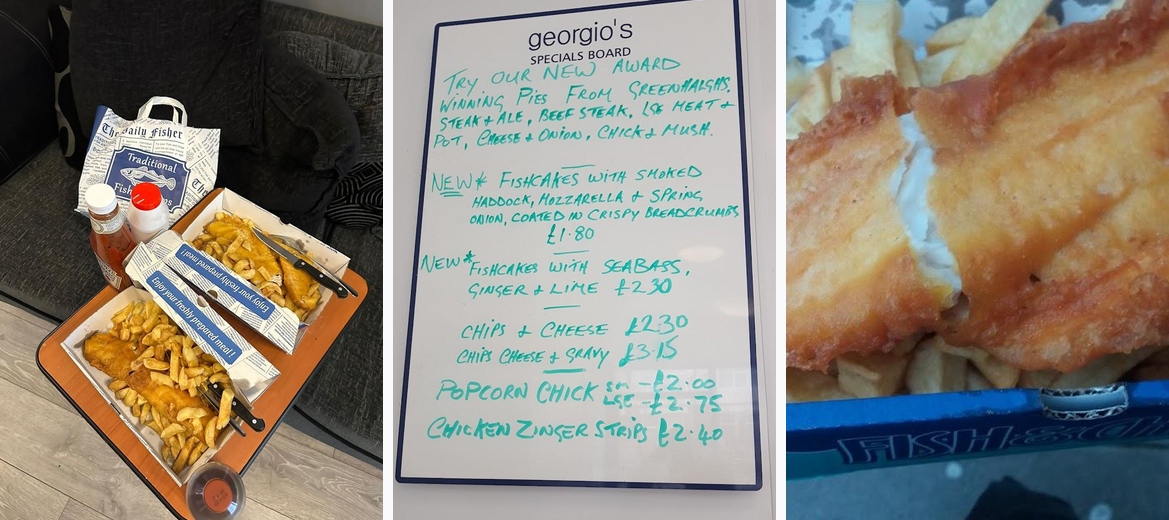 The Daily Fisher
Traditional
Enjoy your freshly prepared meal!
Enjoy your freshly prepared meal!
georgio's
SPECIALS BOARD
TRY OUR NEW AWARD
WINNING PIES FROM GREENHALGHS.
STEAK + ALE, BEEF STEAK, LGE MEAT +
POT, CHEESE + ONION, CHICK + MUSH.
NEW* FISHCAKES WITH SMOKED
HADDOCK, MOZZARELLA + SPRING
ONION, COATED IN CRISPY BREADCRUMBS
£1.80
NEW* FISHCAKES WITH SEABASS,
GINGER + LIME £2.30
CHIPS + CHEESE £2.30
CHIPS CHEESE + GRAVY £3.15
POPCORN CHICK SM - £2.00
LGE - £2.75
CHICKEN ZINGER STRIPS £2.40
FISH &